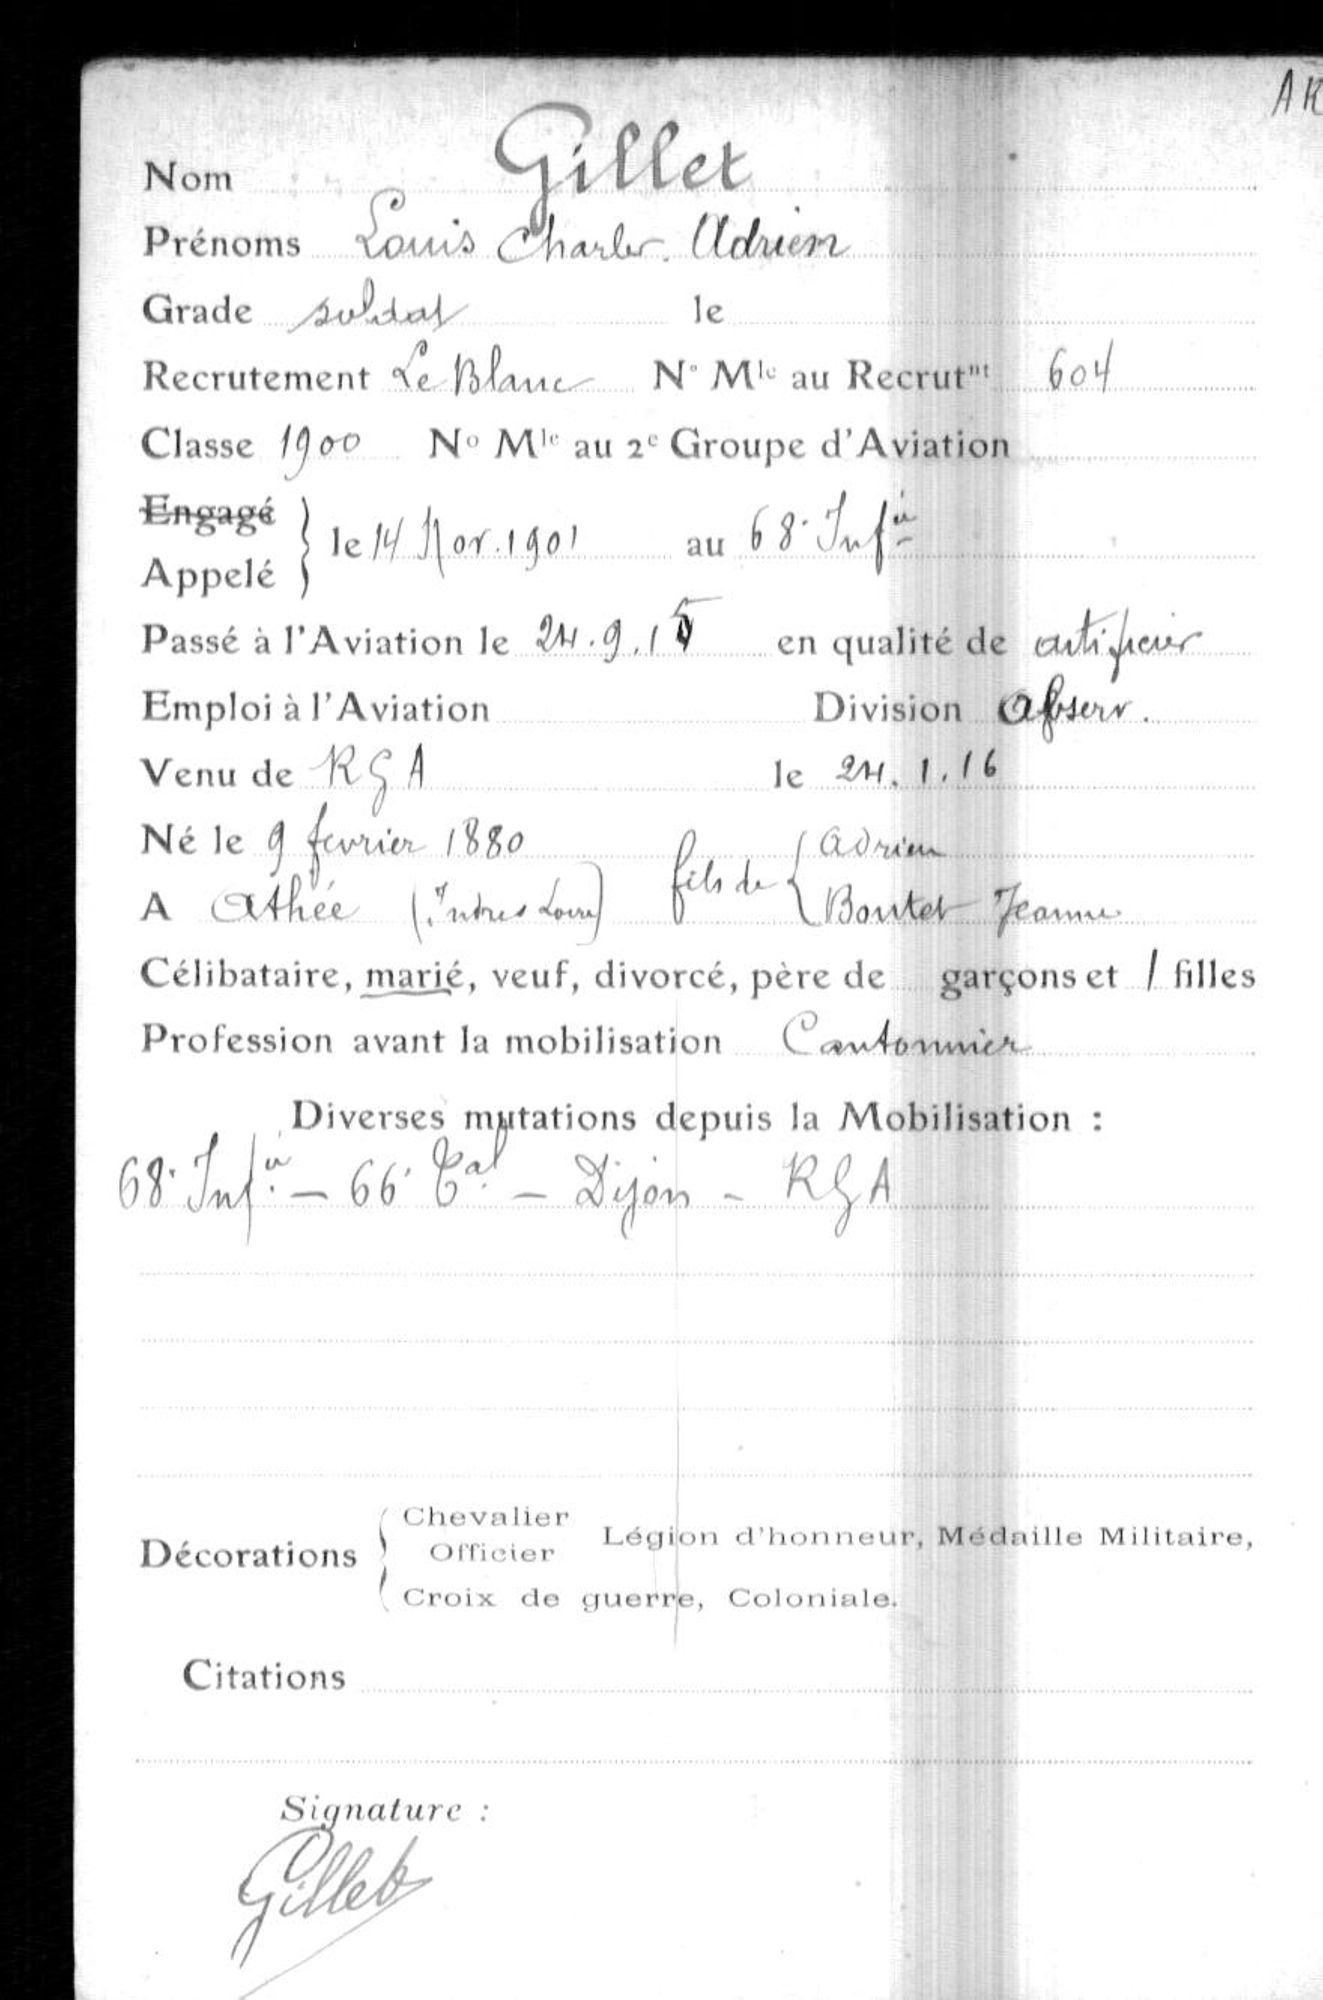 AR
Nom Gillet
Prénoms Louis Charles Adrien
Grade soldat le
Recrutement Le Blanc N° Mle au Recrutnt 604
Classe 1900 No Mle au 2e Groupe d'Aviation
Engagé
Appelé } le 14 Nov. 1901 au 68e Infie
Passé à l'Aviation le 24.9.15 en qualité de artificier
Emploi à l'Aviation Division Observ.
Venu de RGA le 24.1.16
Né le 9 fevrier 1880 fils de { Adrien
A Athée (Indre & Loire) Boutet Jeanne
Célibataire, marié, veuf, divorcé, père de garçons et 1 filles
Profession avant la mobilisation Cantonnier
Diverses mutations depuis la Mobilisation :
68e Infie – 66e Cal – Dijon – RGA
Chevalier
Décorations Officier Légion d'honneur, Médaille Militaire,
Croix de guerre, Coloniale.
Citations
Signature :
Gillet